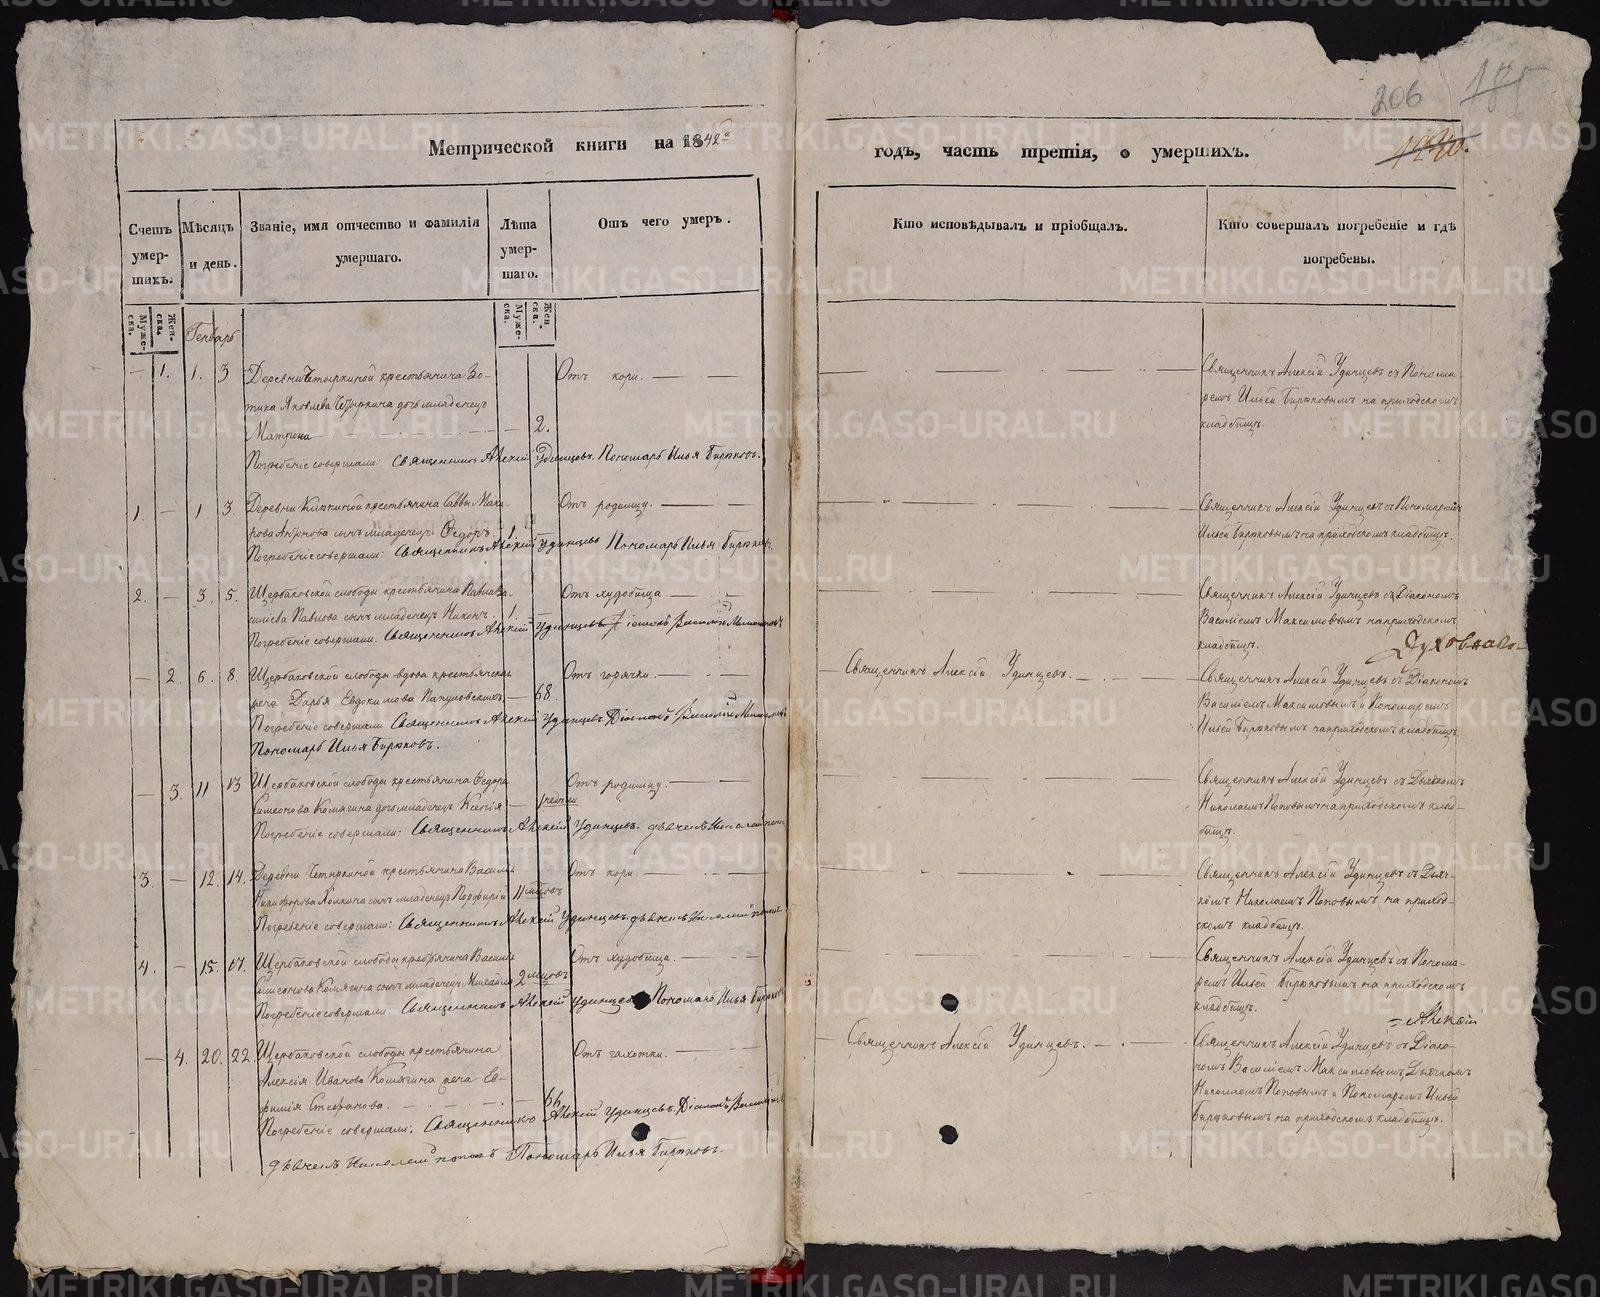 206
185
1220.
Метрической книги на 1842й
годъ, часть третія, о умершихъ.
Счетъ умер-шихъ.
Мѣсяцъ и день.
Званіе, имя отчество и фамилія умершаго.
Лѣта умер-шаго.
Отъ чего умеръ.
Кто исповѣдывалъ и пріобщалъ.
Кто совершалъ погребеніе и гдѣ погребены.
Муже-ска.
Жен-ска.
Генварь
Муже-ска.
Жен-ска.
— 1. 1. 3 Деревни Четыркиной крестьянина Зо-
тика Яковлева Четыркина дочь младенецъ
Матрона — 2.
Отъ кори.
Погребеніе совершали: Священникъ Алексій Удинцевъ. Пономарь Илья Бирюковъ.
Священникъ Алексій Удинцевъ съ Понома-
ремъ Ильей Бирюковымъ на приходскомъ
кладбищѣ.
1. — 1 3. Деревни крестьянина Саввы Мака-
рова сынъ младенецъ Ѳеодоръ. 1.
Отъ родимцу.
Погребеніе совершали: Священникъ Алексій Удинцевъ Пономарь Илья Бирюковъ.
Священникъ Алексій Удинцевъ съ Пономаремъ
Ильей Бирюковымъ на приходскомъ кладбищѣ.
2. — 3. 5. Щербаковской слободы крестьянина
Павлова сынъ младенецъ Никонъ. 1.
Отъ худобища
Погребеніе совершали. Священникъ Алексій Удинцевъ Діаконъ Василій Максимовъ
Священникъ Алексій Удинцевъ съ Діакономъ
Василіемъ Максимовымъ на приходскомъ
кладбищѣ.
Духовнаго
— 2. 6. 8. Щербаковской слободы вдова крестьянская
жена Дарья Евдокимова — 68.
Отъ горячки.
Погребеніе совершали Священникъ Алексій Удинцевъ Діаконъ Василій Максимовъ
Пономарь Илья Бирюковъ.
Священникъ Алексій Удинцевъ.
Священникъ Алексій Удинцевъ съ Діакономъ
Василіемъ Максимовымъ и Пономаремъ
Ильей Бирюковымъ на приходскомъ кладбищѣ
— 3. 11 13 Щербаковской слободы крестьянина Ѳедора
Симеонова Комягина дочь младенецъ Ксенія — 1 недѣли
Отъ родимцу.
Погребеніе совершали: Священникъ Алексій Удинцевъ. дьячекъ Николай Поповъ
Священникъ Алексій Удинцевъ съ Дьячкомъ
Николаемъ Поповымъ на приходскомъ клад-
бищѣ.
3. — 12. 14. Деревни Четыркиной крестьянина Василія
Никифорова сынъ младенецъ Порфирій 11 мѣсяцовъ
Отъ кори.
Погребеніе совершали: Священникъ Алексій Удинцевъ. дьячекъ Николай Поповъ
Священникъ Алексій Удинцевъ съ Дьяч-
комъ Николаемъ Поповымъ на приход-
скомъ кладбищѣ.
4. — 15. 17. Щербаковской слободы крестьянина Василія
Симеонова Комягина сынъ младенецъ Михаилъ 2 мѣсяцовъ
Отъ худобища.
Погребеніе совершали. Священникъ Алексій Удинцевъ Пономарь Илья Бирюковъ
Священникъ Алексій Удинцевъ съ Понома-
ремъ Ильей Бирюковымъ на приходскомъ
кладбищѣ.
Алексій
— 4. 20. 22. Щербаковской слободы крестьянина
Алексія Иванова Комягина жена Ев-
фимія Стефанова. — 66
Отъ чахотки.
Погребеніе совершали: Священникъ Алексій Удинцевъ. Діаконъ Василій
дьячекъ Николай Поповъ Пономарь Илья Бирюковъ.
Священникъ Алексій Удинцевъ.
Священникъ Алексій Удинцевъ съ Діако-
номъ Василіемъ Максимовымъ, Дьячкомъ
Николаемъ Поповымъ и Пономаремъ Ильей
Бирюковымъ на приходскомъ кладбищѣ.
METRIKI.GASO-URAL.RU